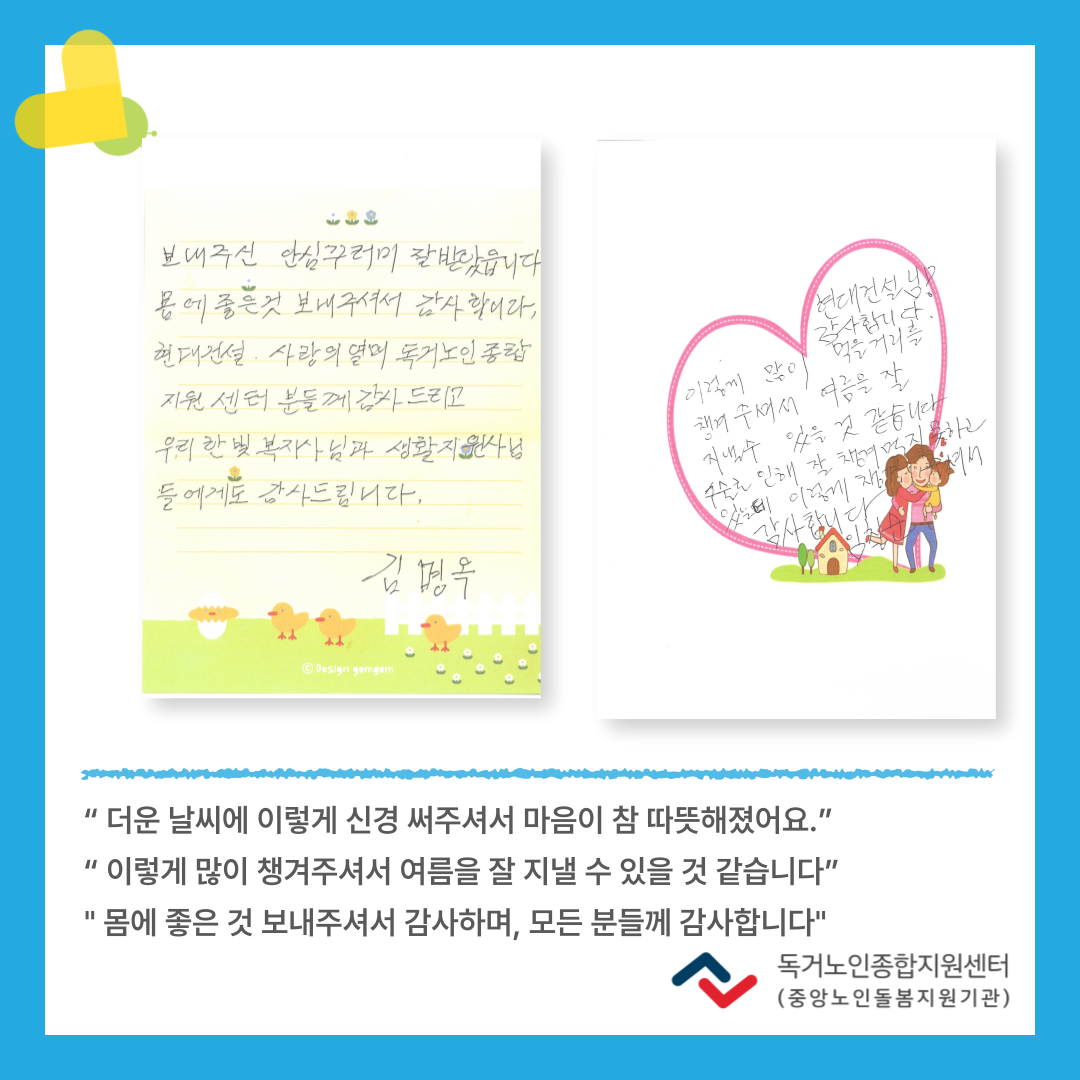 보내주신 안심꾸러미 잘받았읍니다
몸에 좋은것 보내주셔서 감사합니다,
현대건설. 사랑의열매 독거노인종합
지원센터 분들께감사드리고
우리한빛복지사님과 생활지원사님
들에게도 감사드립니다.
김명옥
ⓒDesign gomgom
현대건설님!
감사합니다.
먹을거리를
이렇게 많이
챙겨주셔서 여름을 잘
지낼수 있을 것 같습니다
수술로 인해 잘 챙겨먹지 못하고
있는데 이렇게
감사합니다
“ 더운 날씨에 이렇게 신경 써주셔서 마음이 참 따뜻해졌어요.”
“ 이렇게 많이 챙겨주셔서 여름을 잘 지낼 수 있을 것 같습니다”
" 몸에 좋은 것 보내주셔서 감사하며, 모든 분들께 감사합니다"
독거노인종합지원센터
(중앙노인돌봄지원기관)